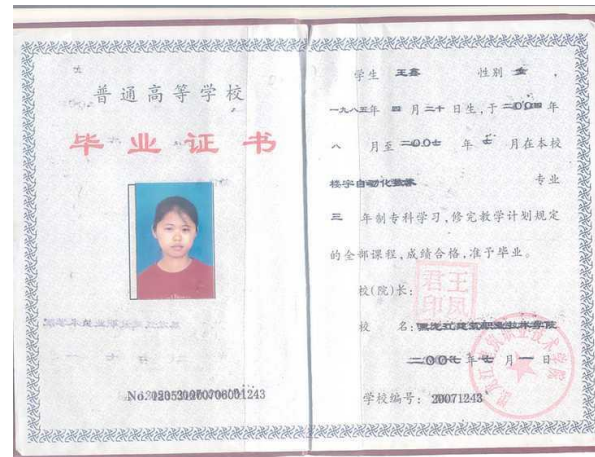 普通高等学校
毕业证书
学生 王鑫 性别 女 ,
一九八五年 四 月二十 日生,于 二〇〇四 年
八 月至 二〇〇七 年 七 月在本校
楼宇自动化技术 专业
三 年制专科学习,修完教学计划规定
的全部课程,成绩合格,准予毕业。
校(院)长:
王凤君印
校 名:黑龙江建筑职业技术学院
二〇〇七 年 七 月 一 日
学校编号: 20071243